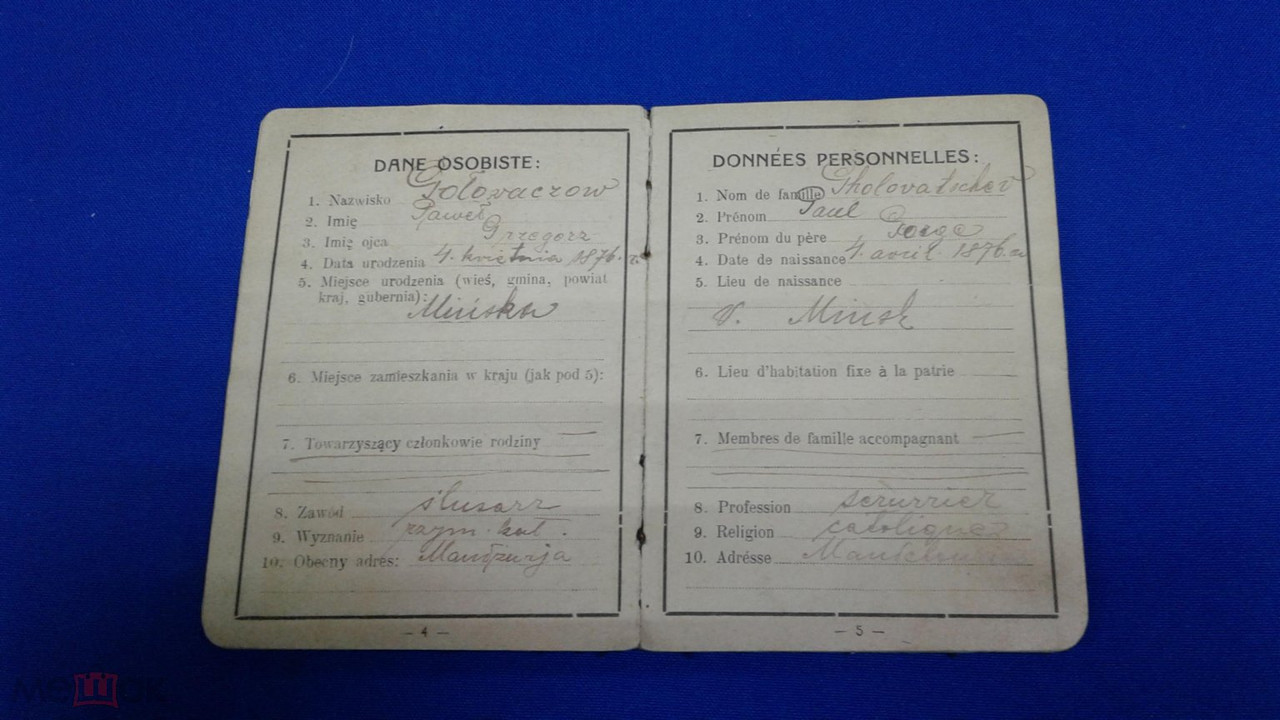 DANE OSOBISTE:
1. Nazwisko Gołowaczow
2. Imię Paweł
3. Imię ojca Grzegorz
4. Data urodzenia 4. kwietnia 1876. r.
5. Miejsce urodzenia (wieś, gmina, powiat
kraj, gubernia):
Mińsk
6. Miejsce zamieszkania w kraju (jak pod 5):
7. Towarzyszący członkowie rodziny
8. Zawód ślusarz
9. Wyznanie rzym. kat.
10. Obecny adres: Mandżurja
— 4 —
DONNÉES PERSONNELLES:
1. Nom de famille Gholovatschev
2. Prénom Paul
3. Prénom du père
4. Date de naissance 4. avril. 1876.
5. Lieu de naissance
v. Minsk
6. Lieu d'habitation fixe à la patrie
7. Membres de famille accompagnant
8. Profession serurrier
9. Religion
10. Adrésse
— 5 —
мешок